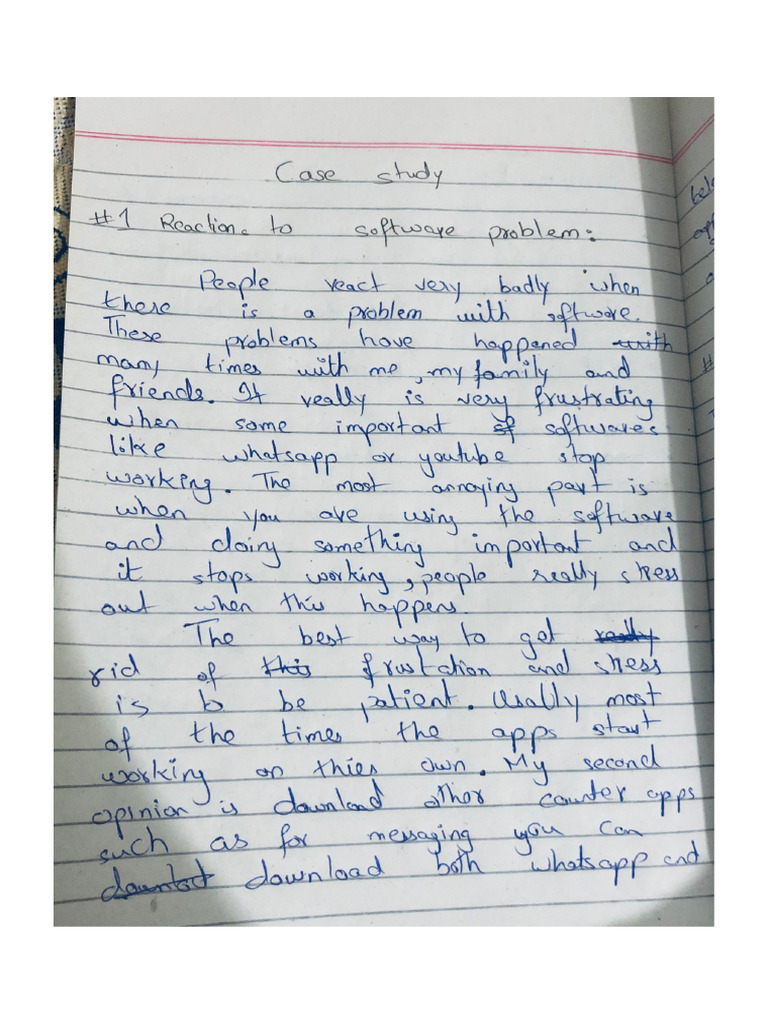 Case study
#1 Reaction. to software problem:
People react very badly when
there is a problem with software.
These problems have happened with
many times with me, my family and
friends. It really is very frustrating
when some important sf softwares
like whatsapp or youtube stop
working. The most annoying part is
when you are using the software
and doing something important and
it stops working, people really stress
out when this happens.
The best way to get really
rid of this frustction and stress
is to be patient. Usally most
of the times the apps start
working on thies own. My second
opinion is download other counter apps
such as for messaging you can
download download both whatsapp and